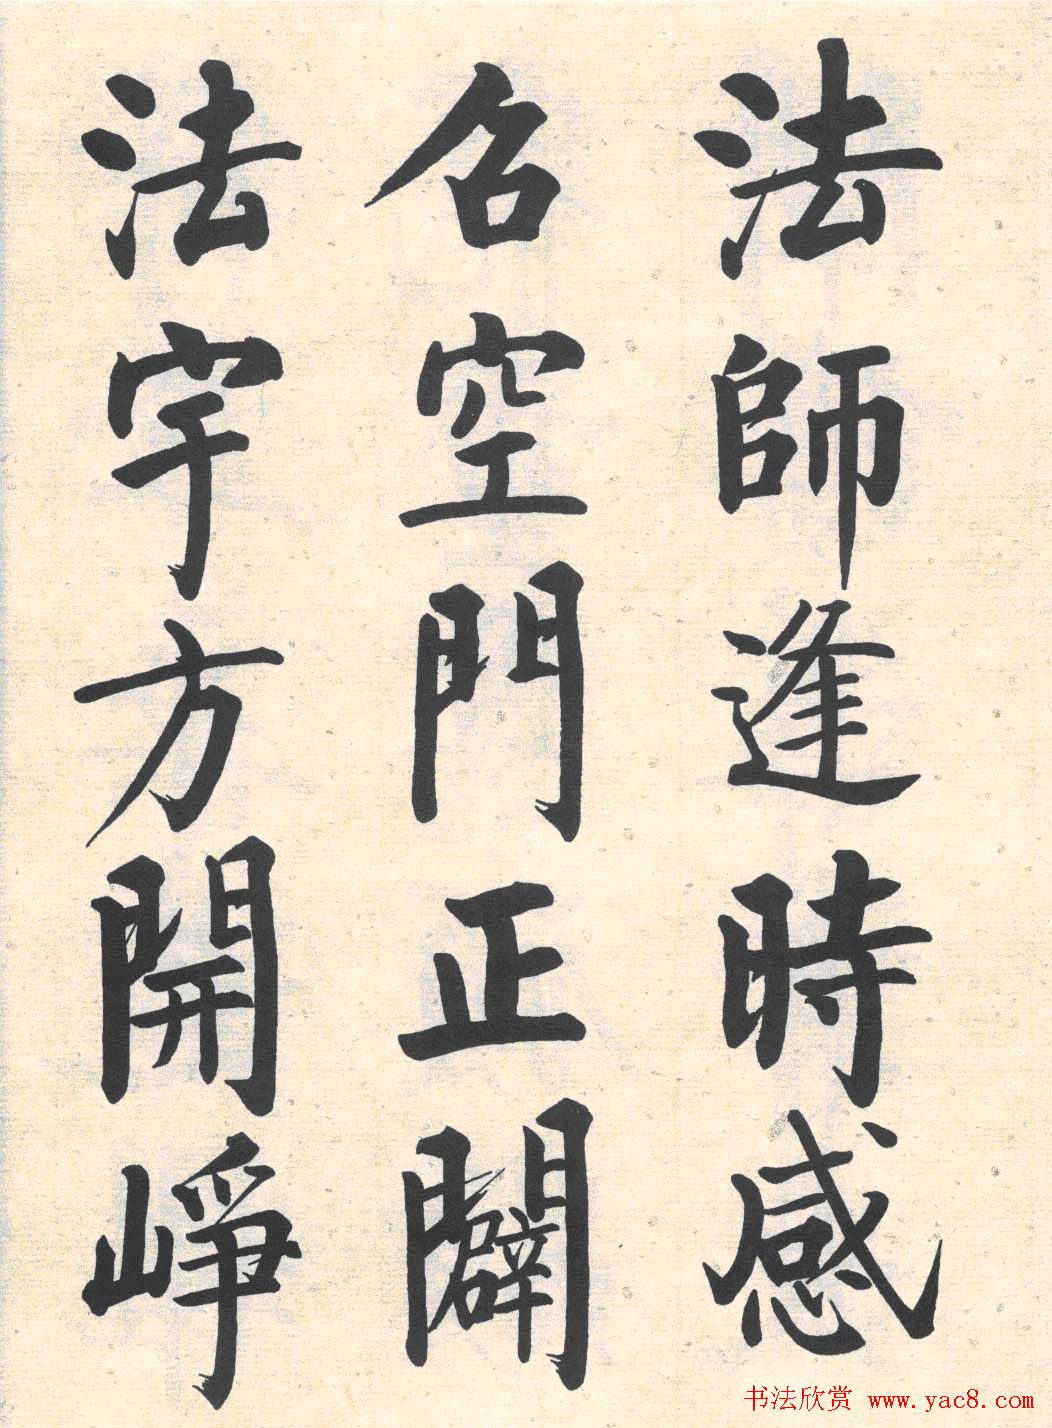 法師逢時感
召空門正闢
法宇方開崢
书法欣赏 www.yac8.com